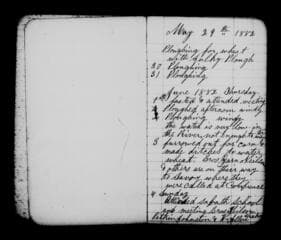 May 29th 1882
Ploughing for wheat
with sulky Plough
30 Ploughing
31 Ploughing
June 1882 Thursday
1st fasted & attended meeting
2 Ploughed afternoon windy
Ploughing windy
the water is very low in
the River, not enough to
3 furrowed out for corn &
made ditches to water
wheat.
others are on their way
to Savoy where they
were called at Conference
4 Sunday
Attended sabath School
and meeting
Johnston &